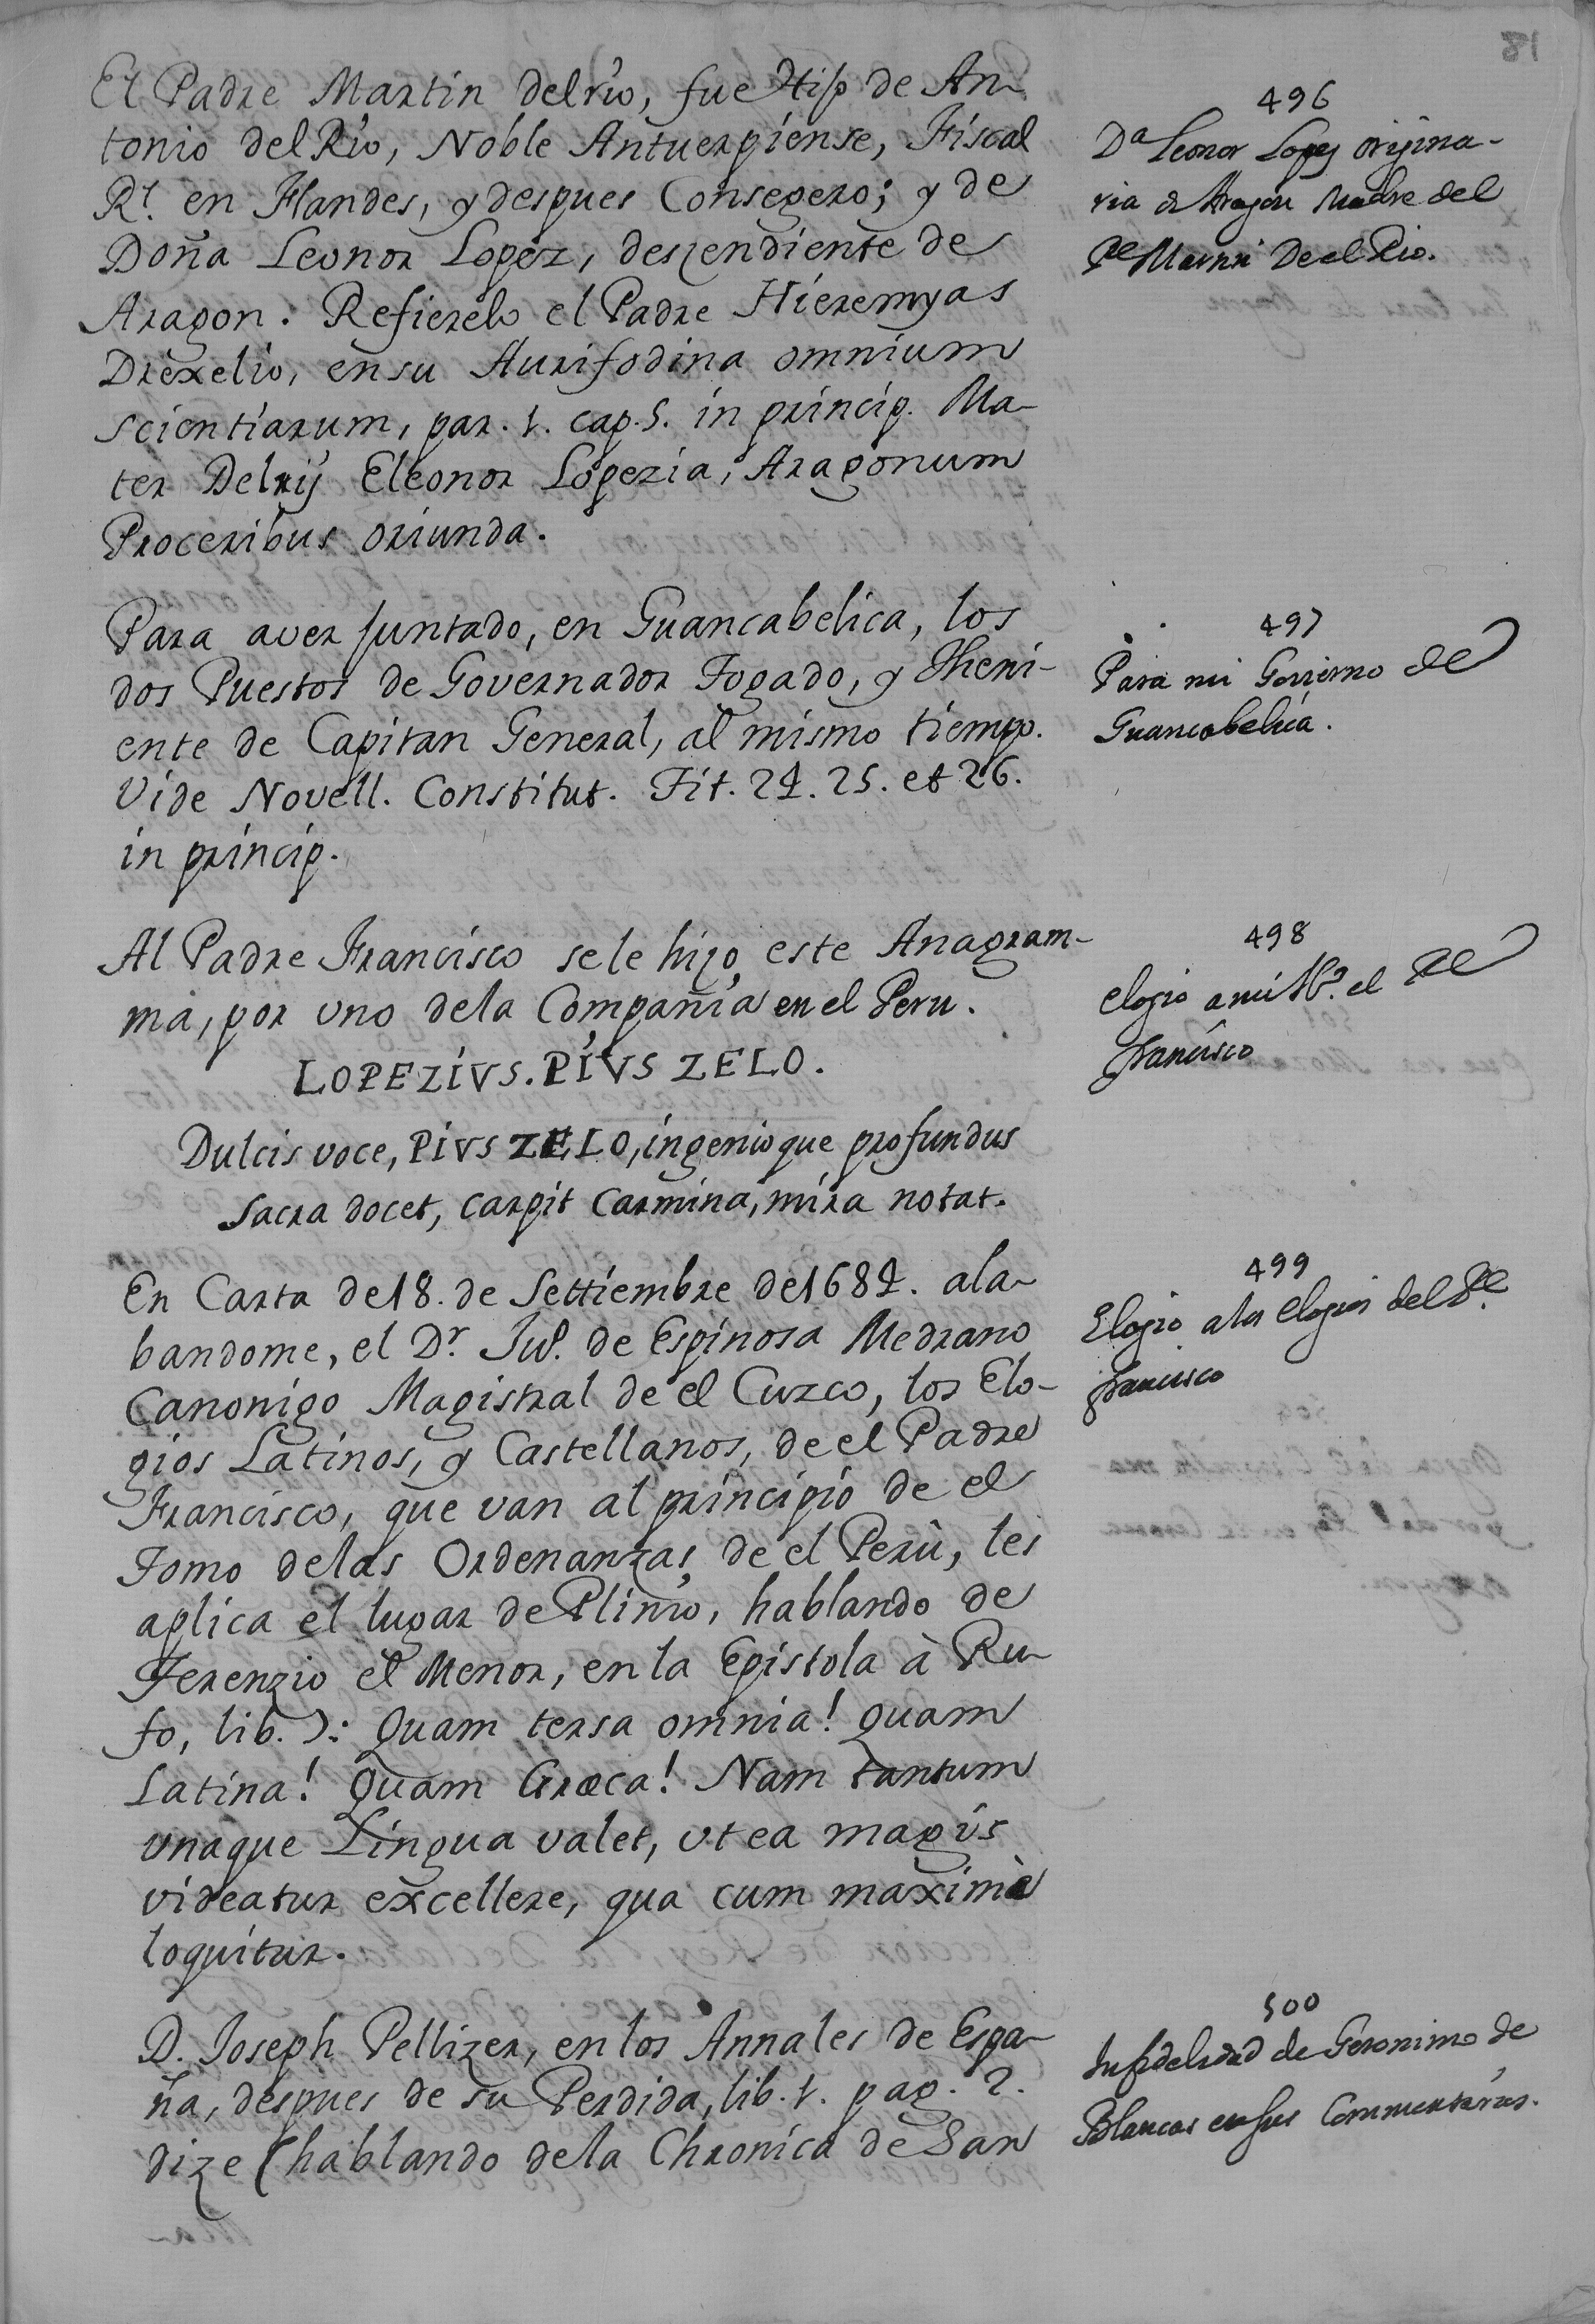 El Padre Martin delrio, fue Hijo de An-
tonio del Rio, Noble Antuerpiense, Fiscal
Rl. en Flandes, y despues Consegero; y de
Doña Leonor Lopez, deszendiente de
Aragon. Refierelo el Padre Hieremyas
Drexelio, en su Aurifodina omnium
scientiarum, par. 1. cap. 5. in princip. Ma-
ter Delrij Eleonor Lopezia, Aragonum
Proceribus oriunda.
496
Da Leonor Lopez origina-
ria de Aragon Madre del
Pe Martin De el Rio.
Para aver juntado, en Guancabelica, los
dos Puestos de Governador Togado, y Theni-
ente de Capitan General, al mismo tiempo.
Vide Novell. Constitut. Tit. 24. 25. et 26.
in princip.
497
Para mi Govierno de
Guancabelica.
Al Padre Francisco se le hizo este Anagram-
ma, por uno de la Compañia en el Peru.
LOPEZIVS. PIVS ZELO.
Dulcis voce, PIVS ZELO, ingenioque profundus
Sacra docet, carpit Carmina, mira notat.
498
elogio a mi Ho. el Pe
Francisco
En Carta de 18. de Settiembre de 1684. ala-
bandome, el Dr. Juo. de Espinosa Medrano
Canonigo Magistral de el Cuzco, los Elo-
gios Latinos, y Castellanos, de el Padre
Francisco, que van al principio de el
Tomo de las Ordenanzas de el Perù, les
aplica el lugar de Plinio, hablando de
Terenzio el Menor, en la Epistola à Ru-
fo, lib. 7: Quam tersa omnia! Quam
Latina! Quam Græca! Nam tantum
vnaque Lingua valet, vt ea magis
videatur excellere, qua cum maximè
loquitur.
499
Elogio a los elogios del Pe.
Francisco
D. Joseph Pellizer, en los Annales de Espa-
ña, despues de su Perdida, lib. 1. pag. 2.
dize (hablando de la Chronica de San
500
Infidelidad de Geronimo de
Blancas en sus Commentarios.